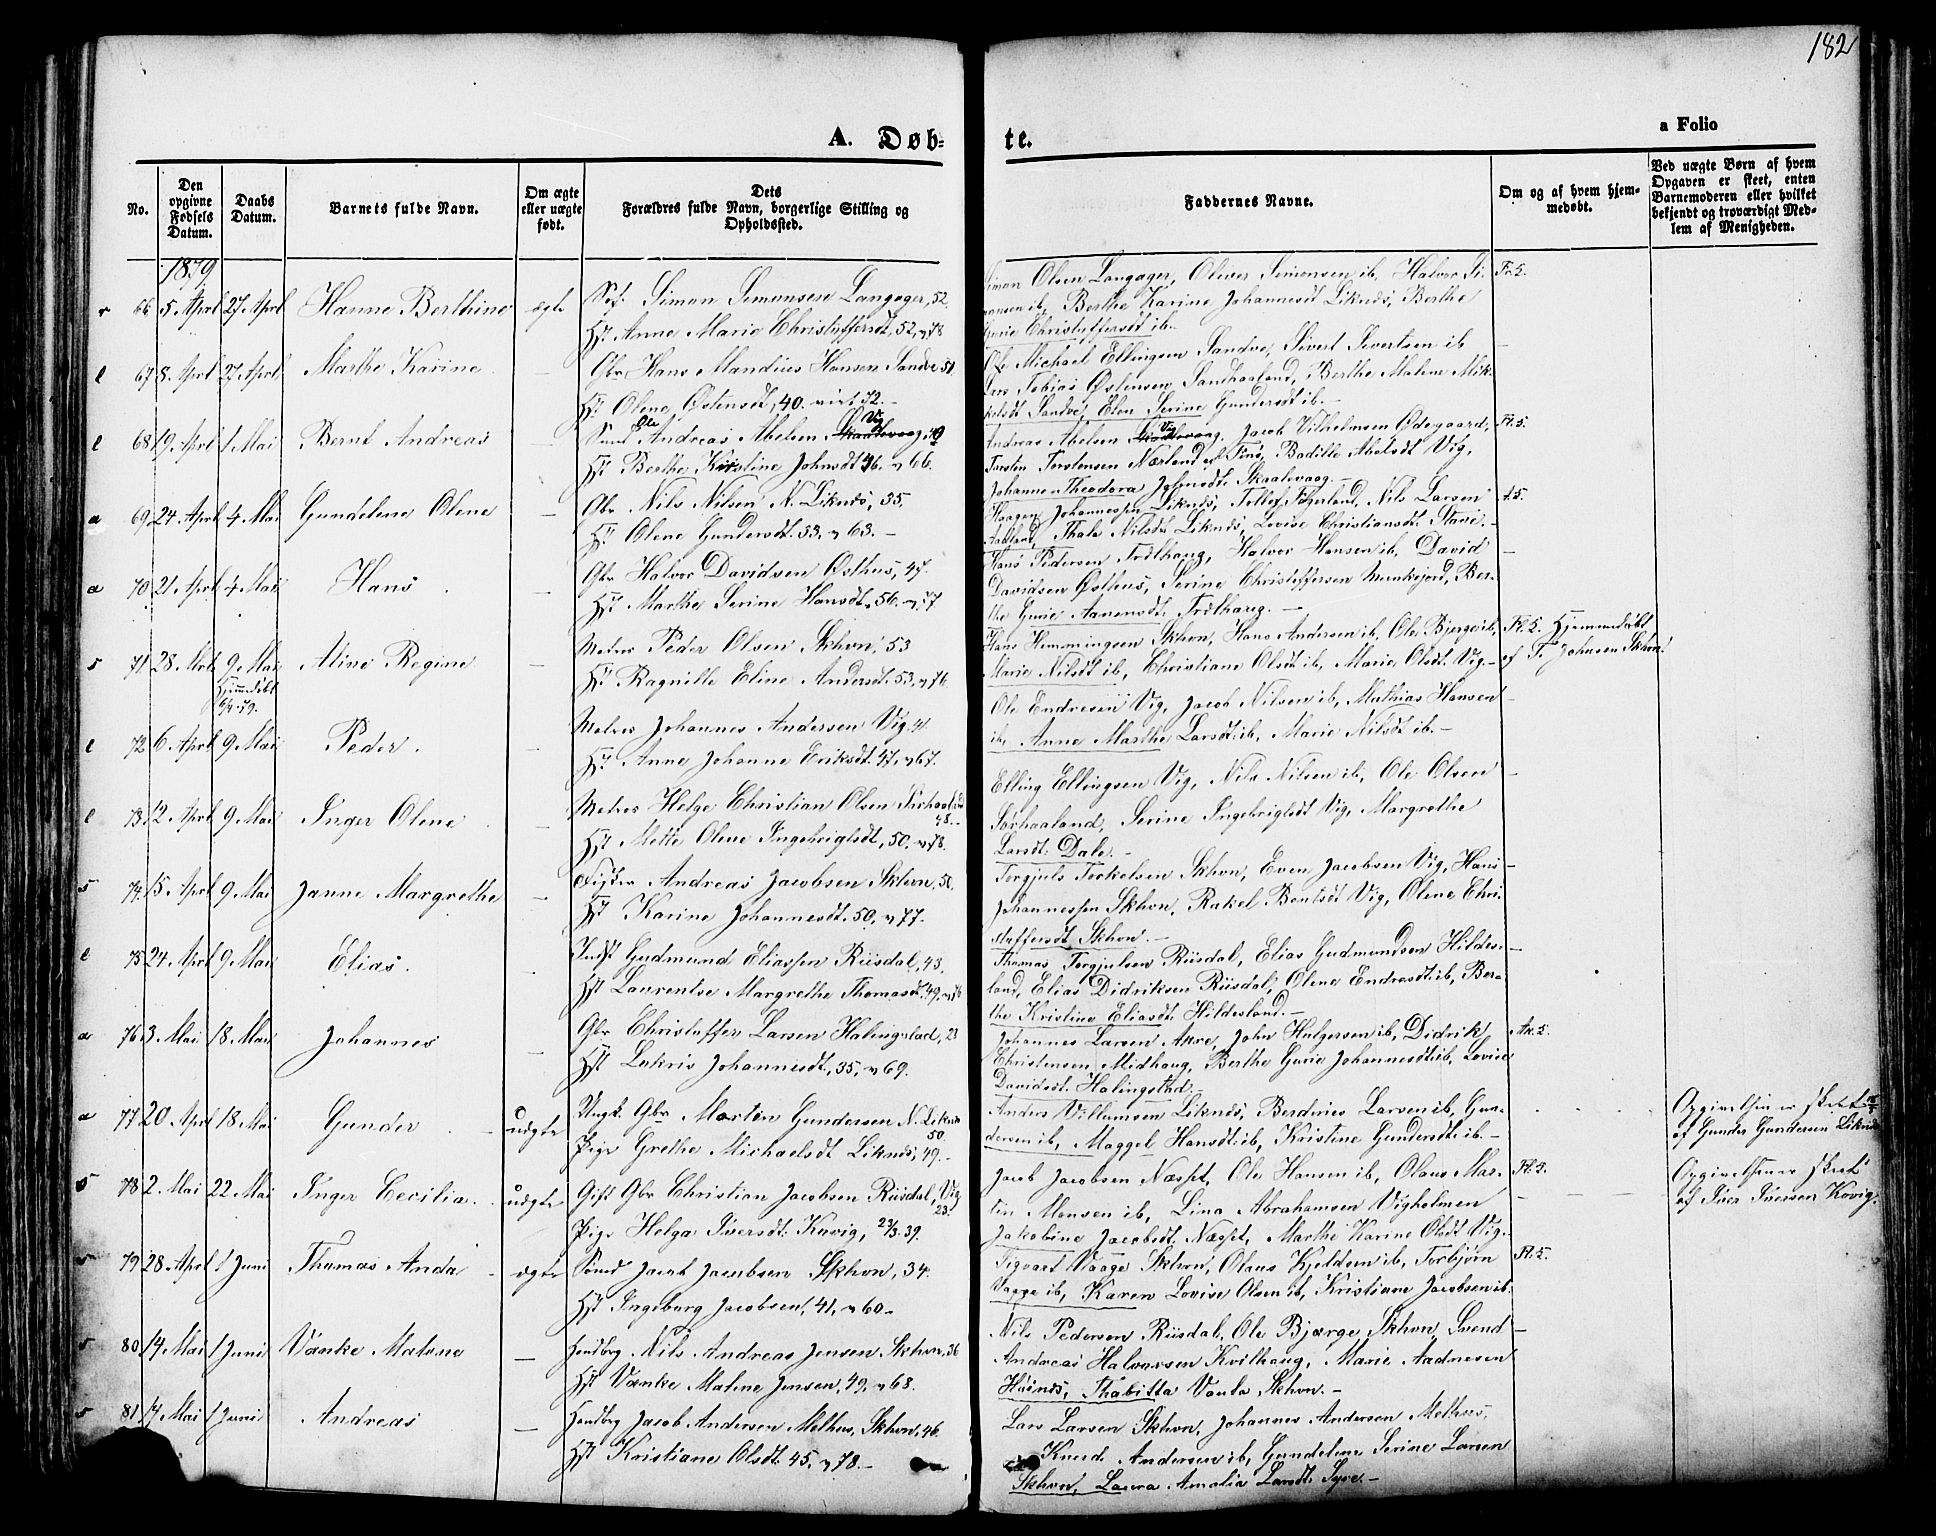 182
A. Døb-
te.
a Folio
No.
Den opgivne Fødsels Datum.
Daabs Datum.
Barnets fulde Navn.
Om ægte eller uægte født.
Dets Forældres fulde Navn, borgerlige Stilling og Opholdssted.
Faddernes Navne.
Om og af hvem hjemmedøbt.
Ved uægte Børn af hvem Opgaven er skeet, enten Barnemoderen eller hvilket bekjendt og troværdigt Medlem af Menigheden.
1879
66 5 Aprl 27 Aprl Hanne Berthine ægte
Simon Simonsen Langager, 52.
Hst Anne Marie Christoffersdt, 52, v 78
Simon Olsen Langager, Oliver Simonsen ib, Halvor Si-
monsen ib, Berthe Karine Johannesdt Liknes, Berthe
Gurie Christoffersdt ib.
67 8 Aprl 27 Aprl Marthe Karine —
Gbr Hans Mandius Hansen Sandve 51
Hst Olene Østensdt, 40. viet 72.
Ole Michael Ellingsen Sandve, Sivert Sivertsen ib —
Lars Tobias Østensen Sandhaaland, Berthe Malene Mik-
kelsdt Sandve, Elen Serine Gundersdt ib. —
68 19 Aprl 1 Mai Bernt Andreas —
Ole Andreas Abelsen Skaalevaag Vig, 40
Hst Berthe Kirstine Johnsdt 46. v 66.
Andreas Abelsen Skaalevaag Vig, Jacob Vilhelmsen Ødegaard,
Torsten Torstensen Nærland, Bodille Abelsdt Vig,
Johanne Theodora Johnsdt Skaalevaag.
69 24 Aprl 4 Mai Gundelene Olene —
Gbr Nils Nilsen N. Liknes, 35.
Hst Olene Gundersdt. 33. v 63. —
Haagen Johannessen Liknes, Nils Larsen
Thale Nilsdt Liknes, Lovise Christiansdt Stave. —
70 21 Aprl 4 Mai Hans —
Gbr Halvor Davidsen Østhus, 47.
Hst Marthe Serine Hansdt, 56. v 77
Hans Pedersen Kvilhaug, Halvor Hansen ib, David —
Davidsen Østhus, Serine Christoffersen Munkejord, Ber-
the Gurie Aanensdt. Kvilhaug. —
71 28 Mrts 9 Mai Aline Regine —
Hjemdøbt
6/4 79.
Peder Olsen Skhvn, 53
Hst Ragnille Eline Andersdt. 53, v 76.
Hans Hemmingsen Skhvn, Hans Andersen ib, Ole Bjerge ib,
Marie Nilsdt ib, Christiane Olsdt ib, Marie Olsdt. Vig. —
Hjemmedøbt
af T. Johnsen Skhvn.
72 6 Aprl 9 Mai Peder. —
Johannes Andersen Vig. 41.
Hst Anne Johanne Eriksdt. 47, v 67.
Ole Endresen Vig, Jacob Nilsen ib, Mathias Hansen —
ib, Anne Marthe Larsdt ib, Marie Nilsdt ib. —
73 12 Aprl 9 Mai Inger Olene —
Helge Christian Olsen Sørhaaland
48. —
Hst Mette Olene Ingebrigtsdt, 50. v 78.
Elling Ellingsen Vig, Nils Nilsen ib, Ole Olsen —
Sørhaaland, Serine Ingebrigtsdt Vig, Margrethe
Larsdt. Dale. —
74 15 Aprl 9 Mai Janne Margrethe —
Fisker Andreas Jacobsen Skhvn, 50.
Hst Karine Johannesdt. 50, v 77.
Torgjuls Torkelsen Skhvn, Even Jacobsen Vig, Hans —
Johannessen Skhvn, Rakel Bentsdt Vig, Olene Chri-
stoffersdt Skhvn. —
75 24 Aprl 9 Mai Elias.
Indst Gudmund Eliassen Riisdal, 43.
Hst Laurentse Margrethe Thomasdt. 49. v 76
Thomas Torgjulsen Riisdal, Elias Gudmundsen Hildes-
land, Elias Didriksen Riisdal, Olene Endresdt ib, Ber-
the Kristine Eliasdt. Hildesland. —
76 3 Mai 18 Mai Johannes —
Gbr Christoffer Larsen Halingstad, 23
Hst Lukris Johannesdt, 35, v 69.
Johannes Larsen Akre, John Helgersen ib, Didrik
Christensen Midhaug, Berthe Gurie Johannesdt ib, Lovise
Davidsdt. Halingstad. —
77 20 Aprl 18 Mai Gunder uægte
Ungk. Gbr Morten Gundersen N. Liknes
50.
Pige Grethe Michaelsdt Liknes, 49. —
Anders Villumsen Liknes, Berdines Larsen ib, Gun-
dersen ib, Maggel Hansdt ib, Kristine Gundersdt ib. —
Opgivelsen er skeet
af Gunder Gundersen Liknes
78 2. Mai 22 Mai Inger Cecilia. uægte
Gift Gbr Christian Jacobsen Riisdal, Vig
23.
Pige Helga Iversdt. Kavig, 23/3. 39.
Jacob Jacobsen Næsset, Ole Hansen ib, Olaus Mar-
tin Monsen ib, Lina Abrahamsen Vigholmen
Jakobine Jacobsdt Næsset, Marthe Karine Olsdt Vig.
Opgivelsen er skeet
af Iver Iversen Kovig.
79 28 Aprl 1 Juni Thomas Anda ægte
Jacob Jacobsen Skhvn, 34.
Hst Ingeborg Jacobsen, 41, v 60 —
Sigvart Vaage Skhvn, Olaus Kjeldsen ib, Torbjørn
Vaage ib, Karen Lovise Olsen ib, Kristiane Jacobsen ib.
80 14 Mai 1 Juni Vænke Malene —
Nils Andreas Jensen Skhvn, 36
Hst Vænke Malene Jensen, 49, v 68.
Nils Pedersen Riisdal, Ole Bjærge Skhvn, Svend —
Andreas Halvorsen Kvilhaug, Marie Aadnesen
Høines, Thabitta Skhvn. —
81 14 Mai 1 Juni Andreas —
Jacob Andersen Melhus, Skhvn, 46.
Hst Kristiane Olsdt. 45. v 78. —
Lars Larsen Skhvn, Johannes Andersen Melhus,
Knud Andersen ib, Gundeline Serine Larsen
Skhvn, Laura Amalia Larsdt. Syre. —